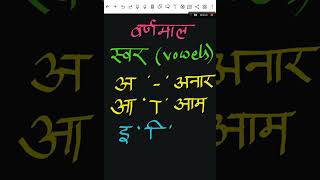 वर्णमाल
स्वर (vowels)
अ '-' अनार
आ 'ा' आम
इ 'ि'